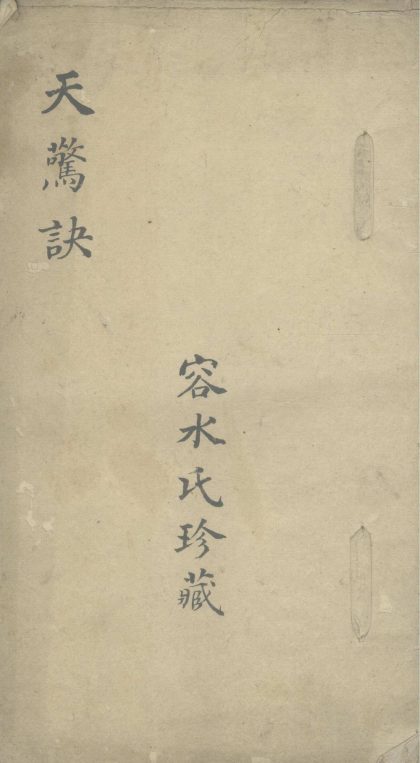 天驚訣
容水氏珍藏